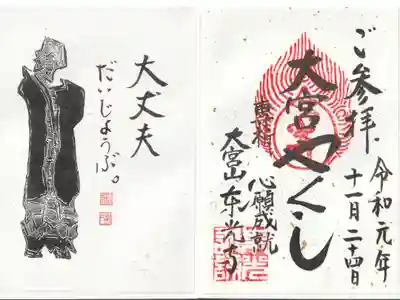 大丈夫
だいじょうぶ。
ご参拝
令和元年
十一月二十四日
大宮やくし
心願成就
大宮山東光寺